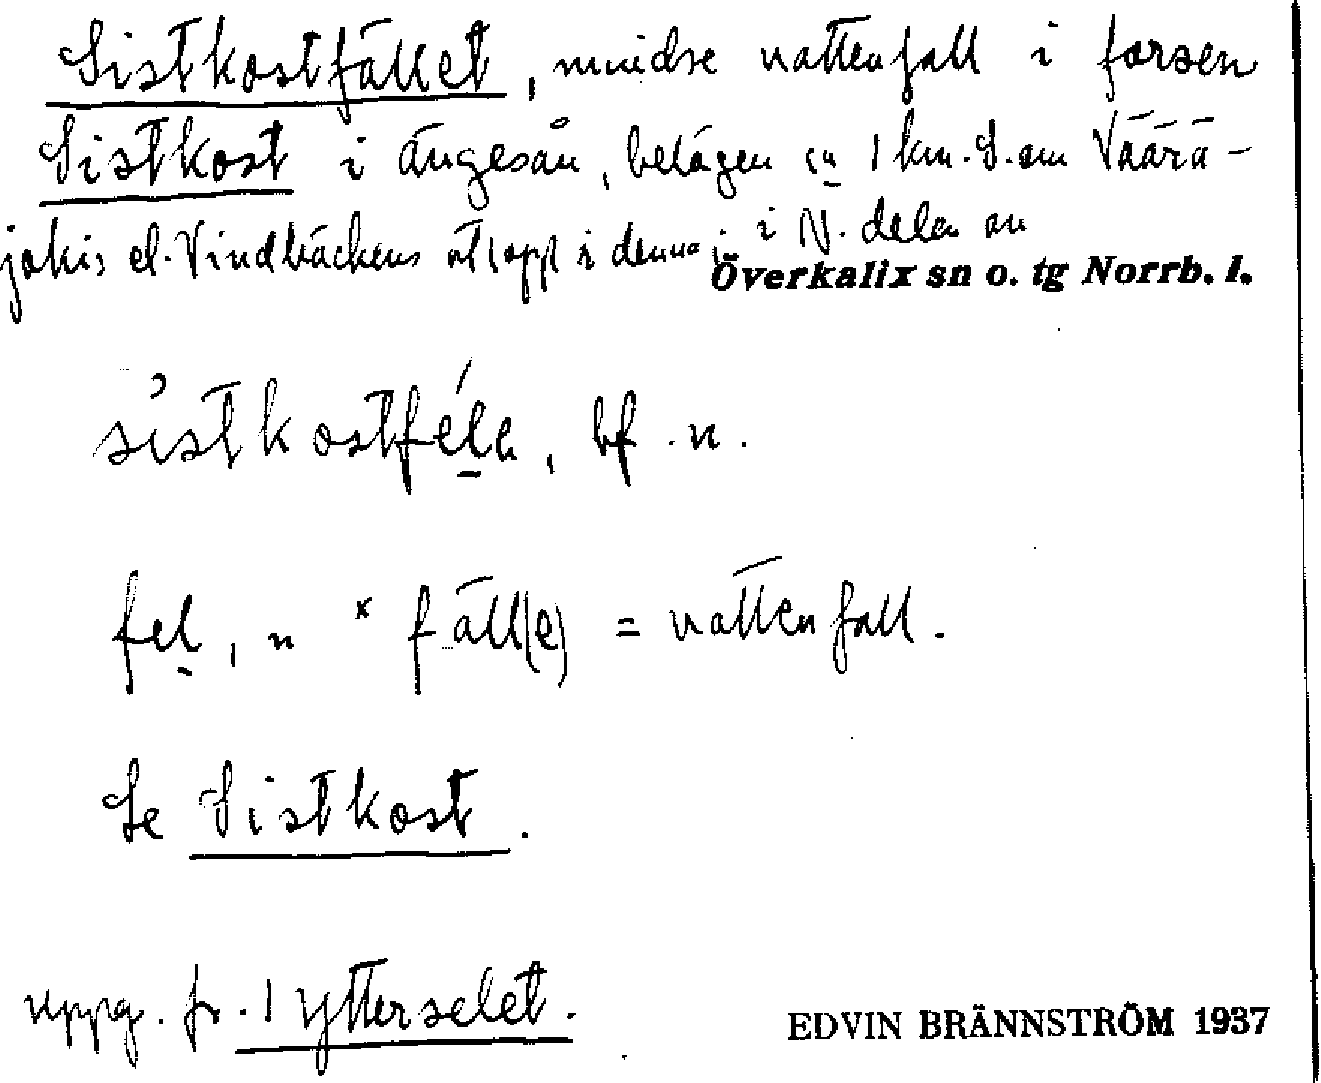 Sistkostfället, mindre vattenfall i forsen
Sistkost i Ängesån, belägen ca 1 km. S. om Väärä-
jokis el. Vindbäckens utlopp i denna i N. delen av
Överkalix sn o. tg Norrb. l.
sistkostféle, bf. n.
fel, n * fäll(e) = vattenfall.
Se Sistkost.
uppg. fr. 1 Ytterselet.
EDVIN BRÄNNSTRÖM 1937